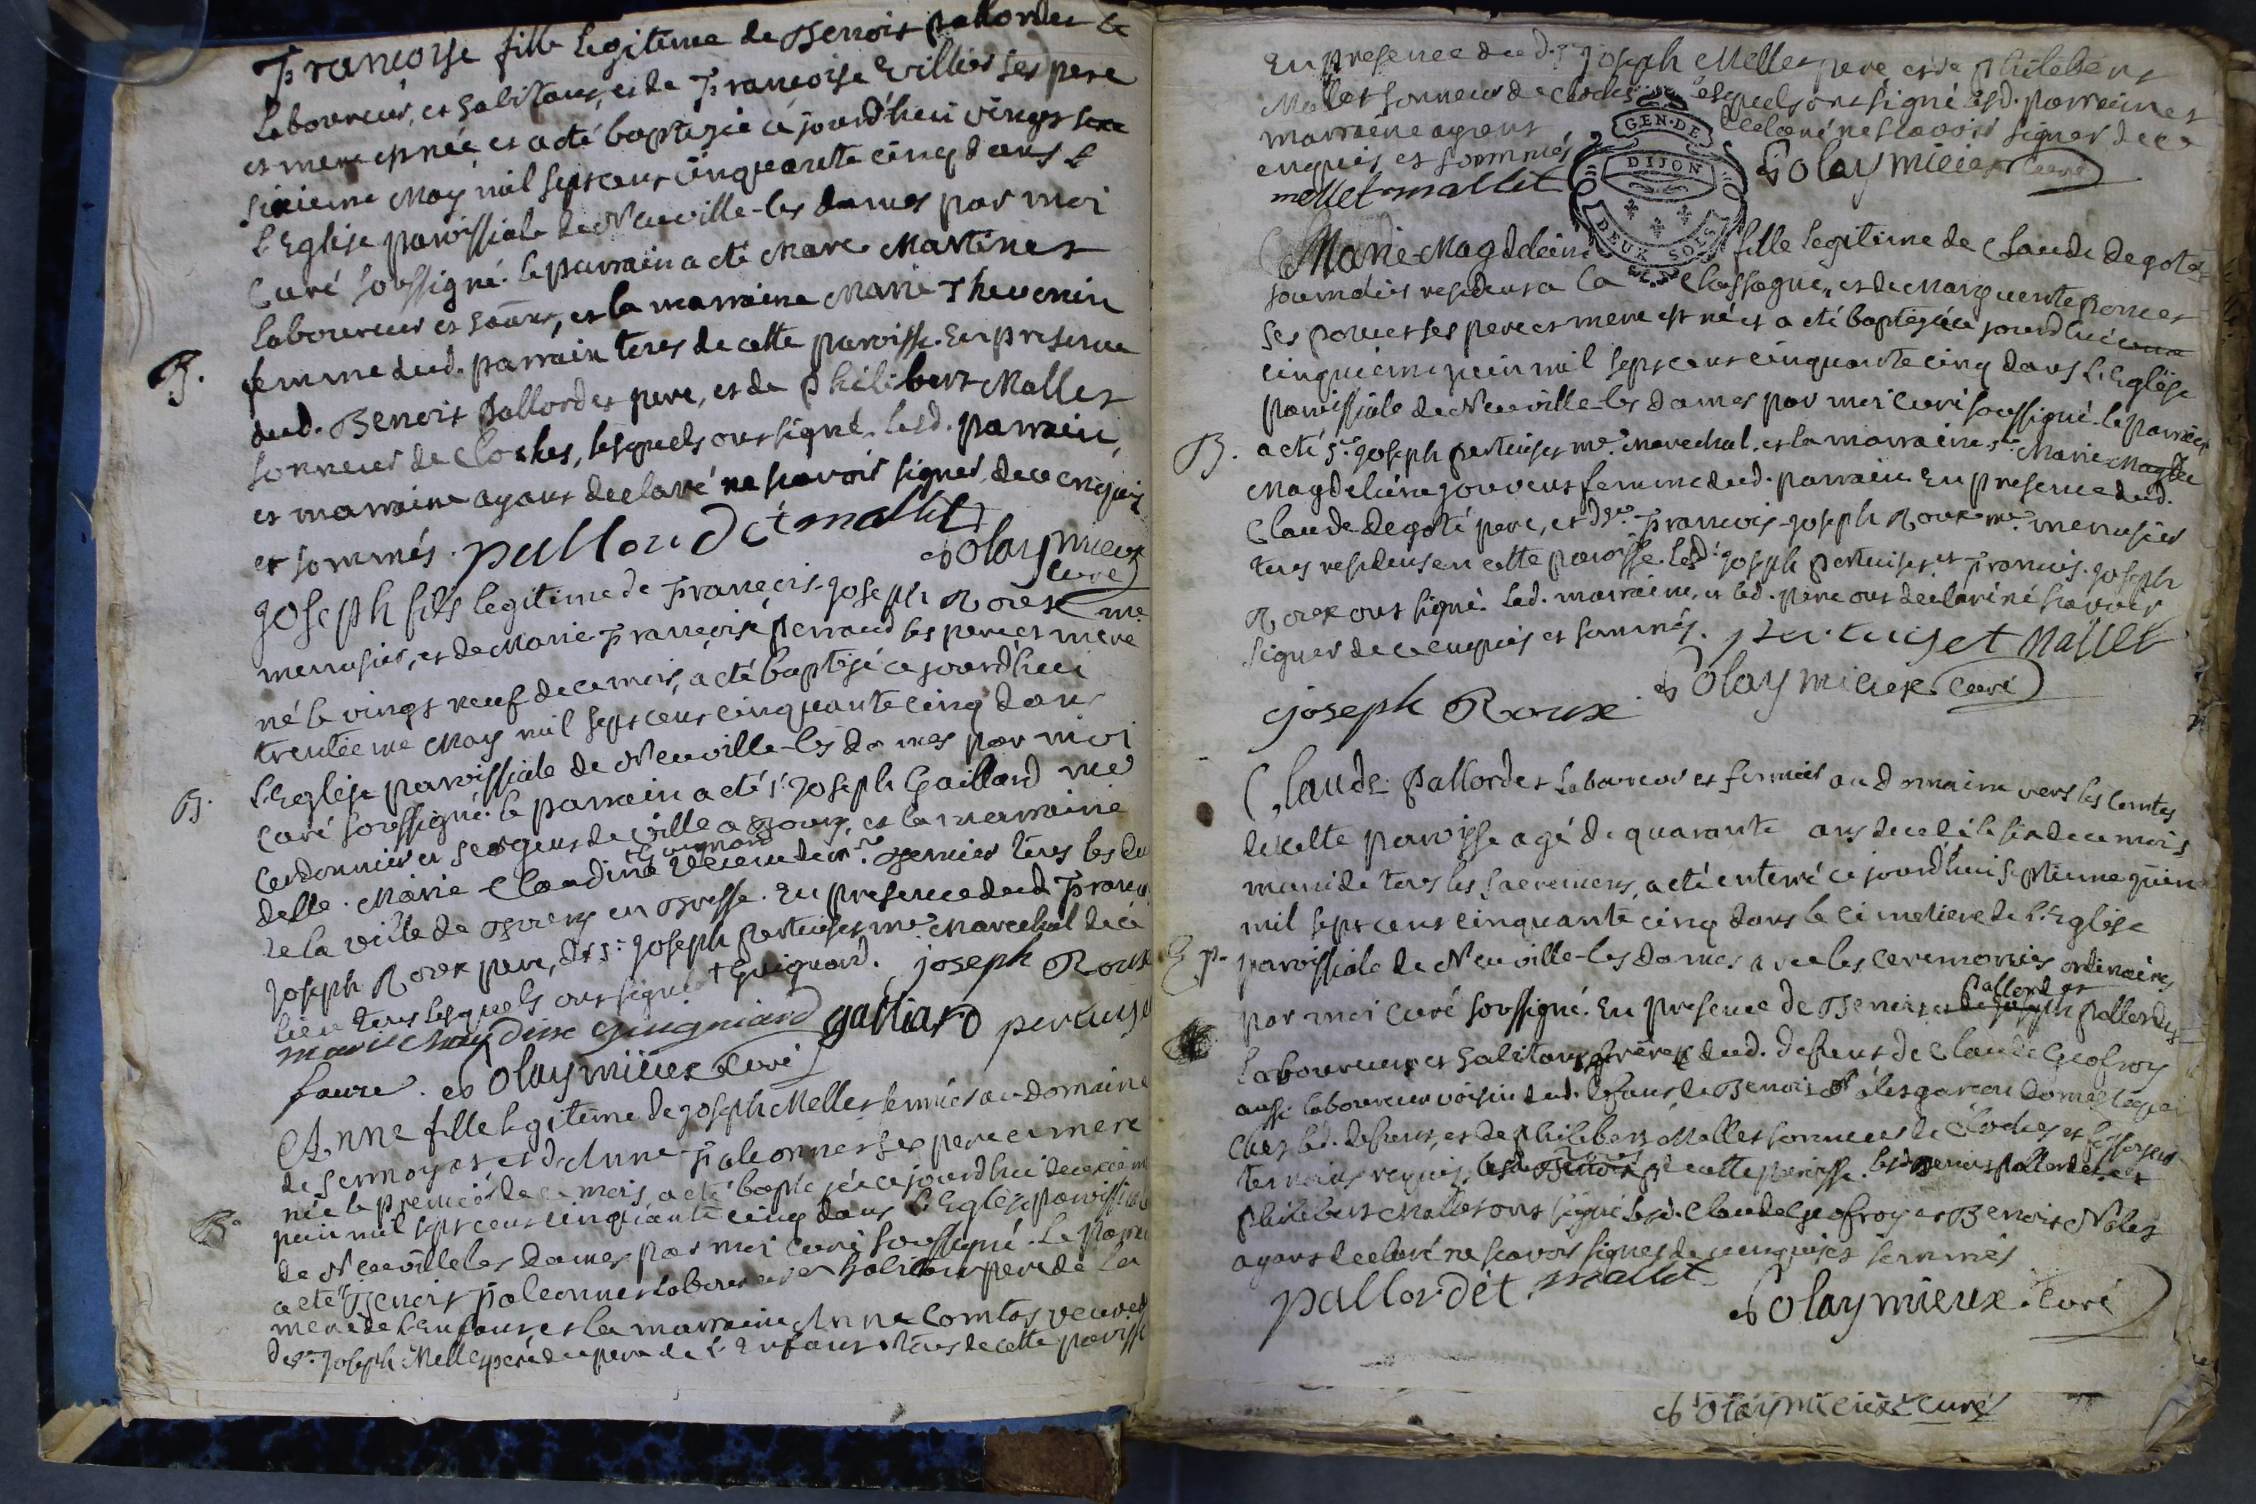 Francoise fille legitime de Benoit pallordet
laboureur, et habitant, et de Francoise Villier ses pere
et mere est née et a eté baptizée ce jourd'hui vingt
sixieme May mil sept cent cinquante cinq dans L
L'Eglise paroissiale de Neuville-les dames par moi
Curé soussigné. le parrain a eté Marc Martinet
laboureur et, et la marraine Marie Thevenin
femme dud. parrain tous de cette paroisse. En presence
B.
dud. Benoit Pallordet pere, et de Philibert Mallet
sonneur de Cloches, lesquels ont signé. lesd. parrain,
et marraine ayant declaré ne scavoir signer, de ce enquis
et sommés. pallordet mallet
Solaymieux
curé
Joseph fils legitime de Francois-Joseph Roux me
menusier, et de Marie Francoise Perraud ses pere et mere
né le vingt neuf de ce mois, a eté baptisé ce jourd'hui
trentieme May mil sept cent cinquante cinq dans
L'Eglise paroissiale de Neuville-les dames par moi
B.
Curé soussigné. le parrain a eté sr Joseph Gaillard me
Cordonnier et sergent de ville a Bourg, et la marraine
+ Guignard
delle. Marie Claudine veuve de tous les deux
de la ville de Bourg en Bresse. En presence dud. Francois
Joseph Roux pere, et sr Joseph pertuiset me marechal de ce
lieu tous lesquels ont signé + Guignard. joseph Roux
marie claudine guigniard galliard pertuiset
faure. Solaymieux curé
Anne fille legitime de Joseph Mellet fermier au domaine
de Sermoyat et d'Anne Paleonnet ses pere et mere
née le premier de ce mois, a eté baptisée ce jourd'hui deuxieme
juin mil sept cent cinquante cinq dans L'Eglise paroissiale
B.
de Neuville les Dames par moi curé soussigné. Le parrain
a eté Benoit Paleonnet laboureur et habitant pere de la
mere de L'Enfant et la marraine Anne Comtes veuve
de Joseph Mellet pere du pere de L'Enfant tous de cette paroisse
En presence dud. Joseph Mellet pere et de Philibert
Mallet sonneur de cloches lesquels ont signé lesd. parrain et
marraine ayant declaré ne scavoir signer de ce
enquis et sommés
mellet mallet Solaymieux curé
GEN. DE
DIJON
DEUX SOLS
Marie Magdeleine fille legitime de Claude Degoté
journalier resident a la Chassagne, et de Marguerite Ponet
ses pere et mere est née et a eté baptizée ce jourd'hui
cinquieme juin mil sept cent cinquante cinq dans L'Eglise
paroissiale de Neuville-les dames par moi curé soussigné. le parrain
B.
a eté sr Joseph pertuiset me marechal, et la marraine Marie
Magdeleine Jouvent femme dud. parrain. En presence dud.
Claude Degoté pere, et de Francois-Joseph Roux me menusier
tous residens en cette paroisse. Lesd. Joseph pertuiset et Francois-Joseph
Roux ont signé. Lad. marraine, et led. pere ont declaré ne scavoir
signer de ce enquis et sommés. pertuiset Mallet
joseph Roux Solaymieux curé
Claude Pallordet laboureur et fermier au domaine vers les Comtes
de cette paroisse agé de quarante ans decedé le six de ce mois
muni de tous les sacremens, a eté enterré ce jourd'hui septieme juin
mil sept cent cinquante cinq dans le cimetiere de L'Eglise
Sp.
paroissiale de Neuville-les dames avec les ceremonies ordinaires
Pallordet
par moi curé soussigné. En presence de Benoit et de Joseph Pallordet
laboureurs et habitans freres dud. defunt de Claude Geofroy
aussi laboureur voisin dud. defunt de Benoit Nolet garçon domestique
chez led. defunt, et de Philibert Mallet sonneur de cloches et fossoyeur
temoins requis, tous de cette paroisse. lesd. Benoit pallordet et
philibert Mallet ont signé lesd. Claude Geofroy et Benoit Nolet
ayant declaré ne scavoir signer de ce enquis et sommés
pallordet mallet Solaymieux. curé
Solaymieux curé